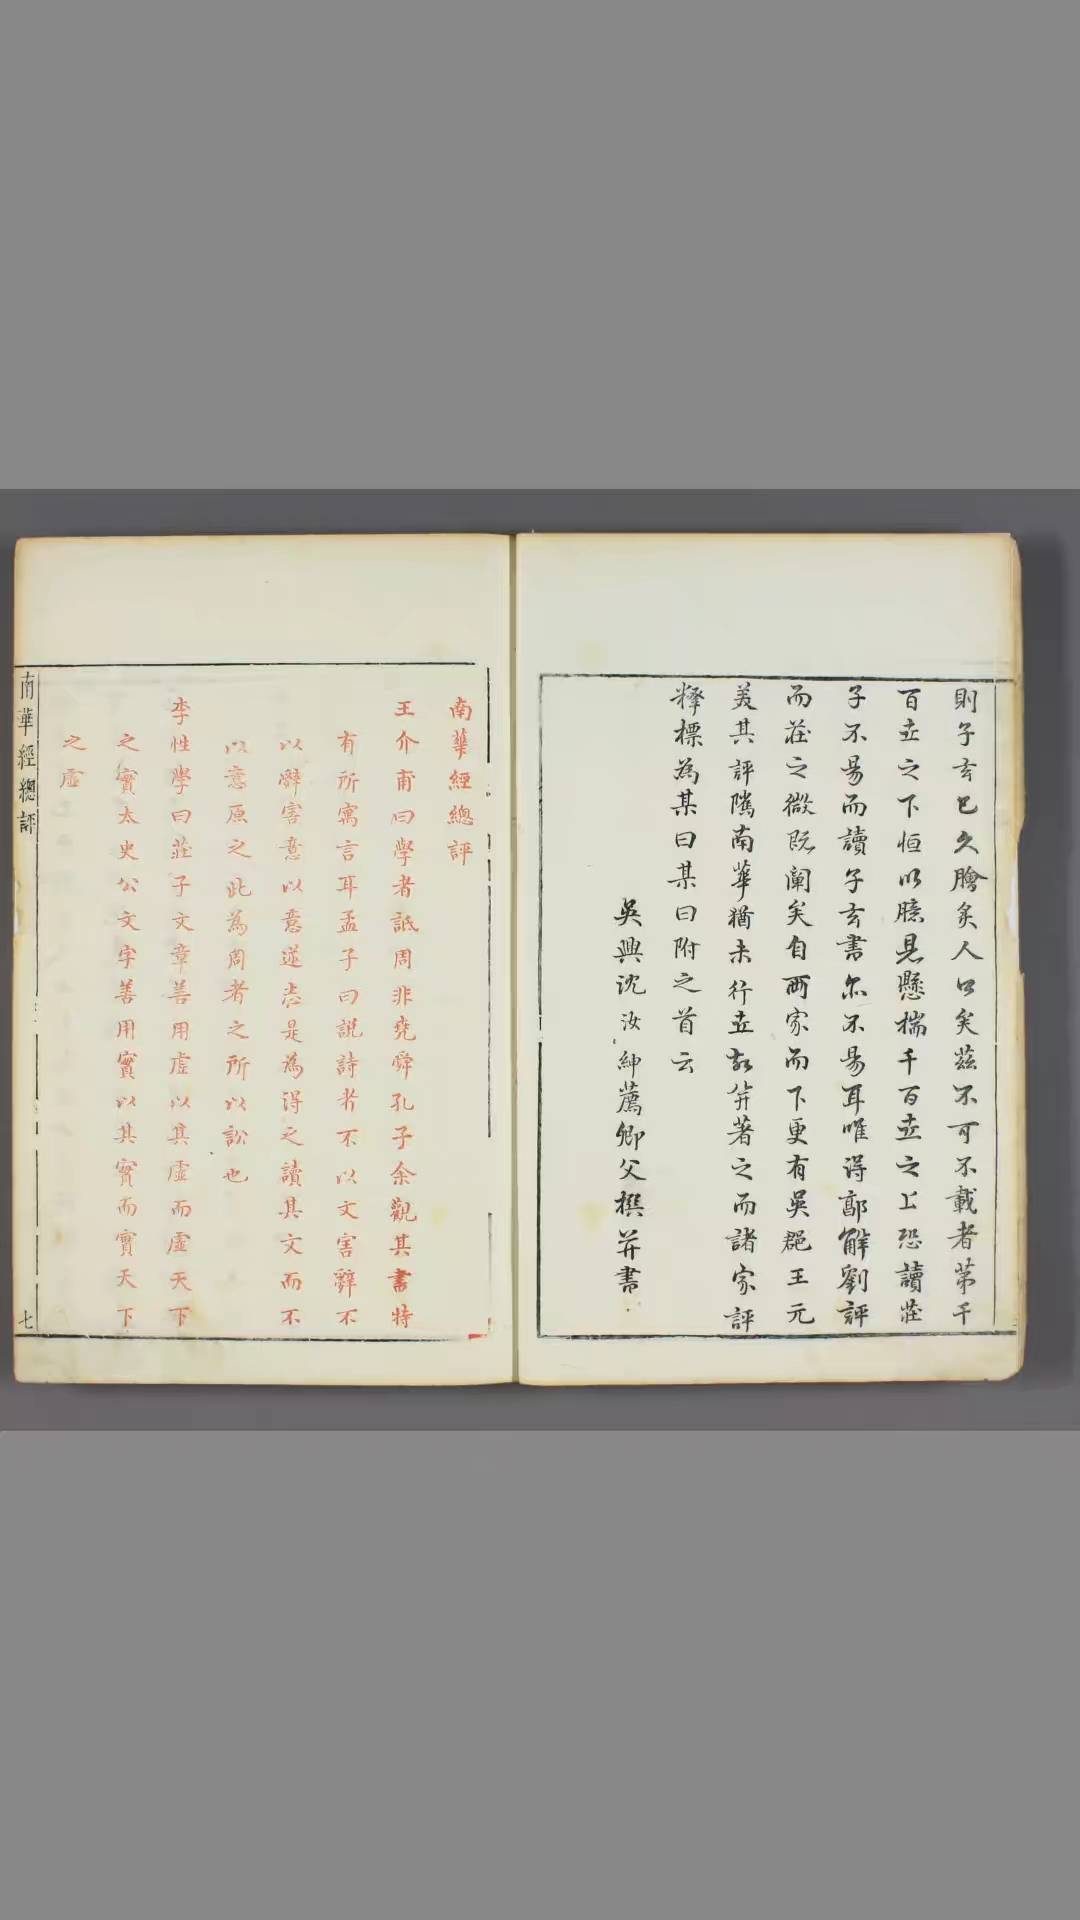 則子玄已久膾炙人口矣茲不可不載者苐千
百世之下恒以臆見懸揣千百世之上恐讀莊
子不易而讀子玄書尓不易耳唯得郭解劉評
而莊之微既闡矣自兩家而下更有吳郡王元
美其評隲南華猶未行世故并著之而諸家評
釋標為某曰某曰附之首云
吳興沈汝紳薦卿父撰并書
南華經總評
王介甫曰學者詆周非堯舜孔子余觀其書特
有所寓言耳孟子曰說詩者不以文害辭不
以辭害意以意逆志是為得之讀其文而不
以意原之此為周者之所以訟也
李性學曰莊子文章善用虛以其虛而虛天下
之實太史公文字善用實以其實而實天下
之虛
南華經總評
七